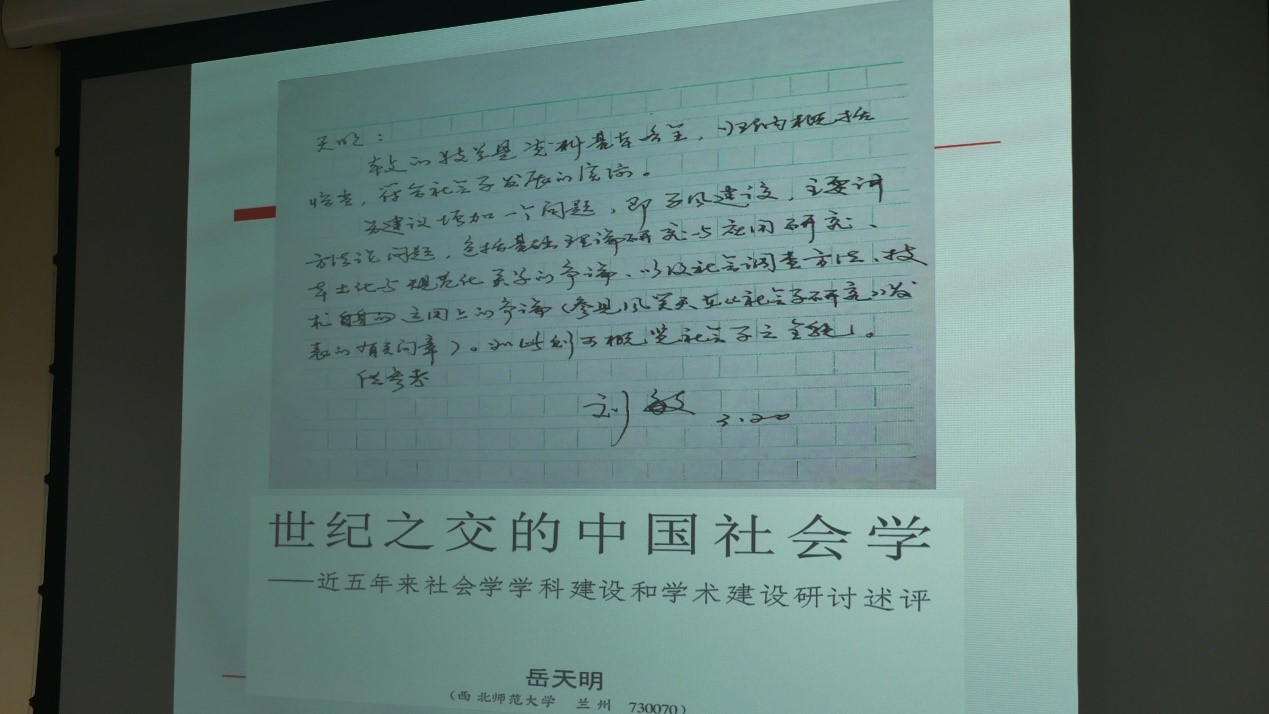 天明：
本文的特点是资料基本齐全，归纳概括
恰当，符合社会学发展的实际。
建议增加一个问题，即学风建设，主要讲
方法论问题，包括基础理论研究与应用研究、
本土化与规范化关系的争论、以及社会调查方法、技
术应用上的争论（参见风笑天在《社会学研究》发
表的有关文章）。如此则可概览社会学之全貌。
供参考
刘敏 3.20
世纪之交的中国社会学
——近五年来社会学学科建设和学术建设研讨述评
岳天明
（西北师范大学 兰州 730070）